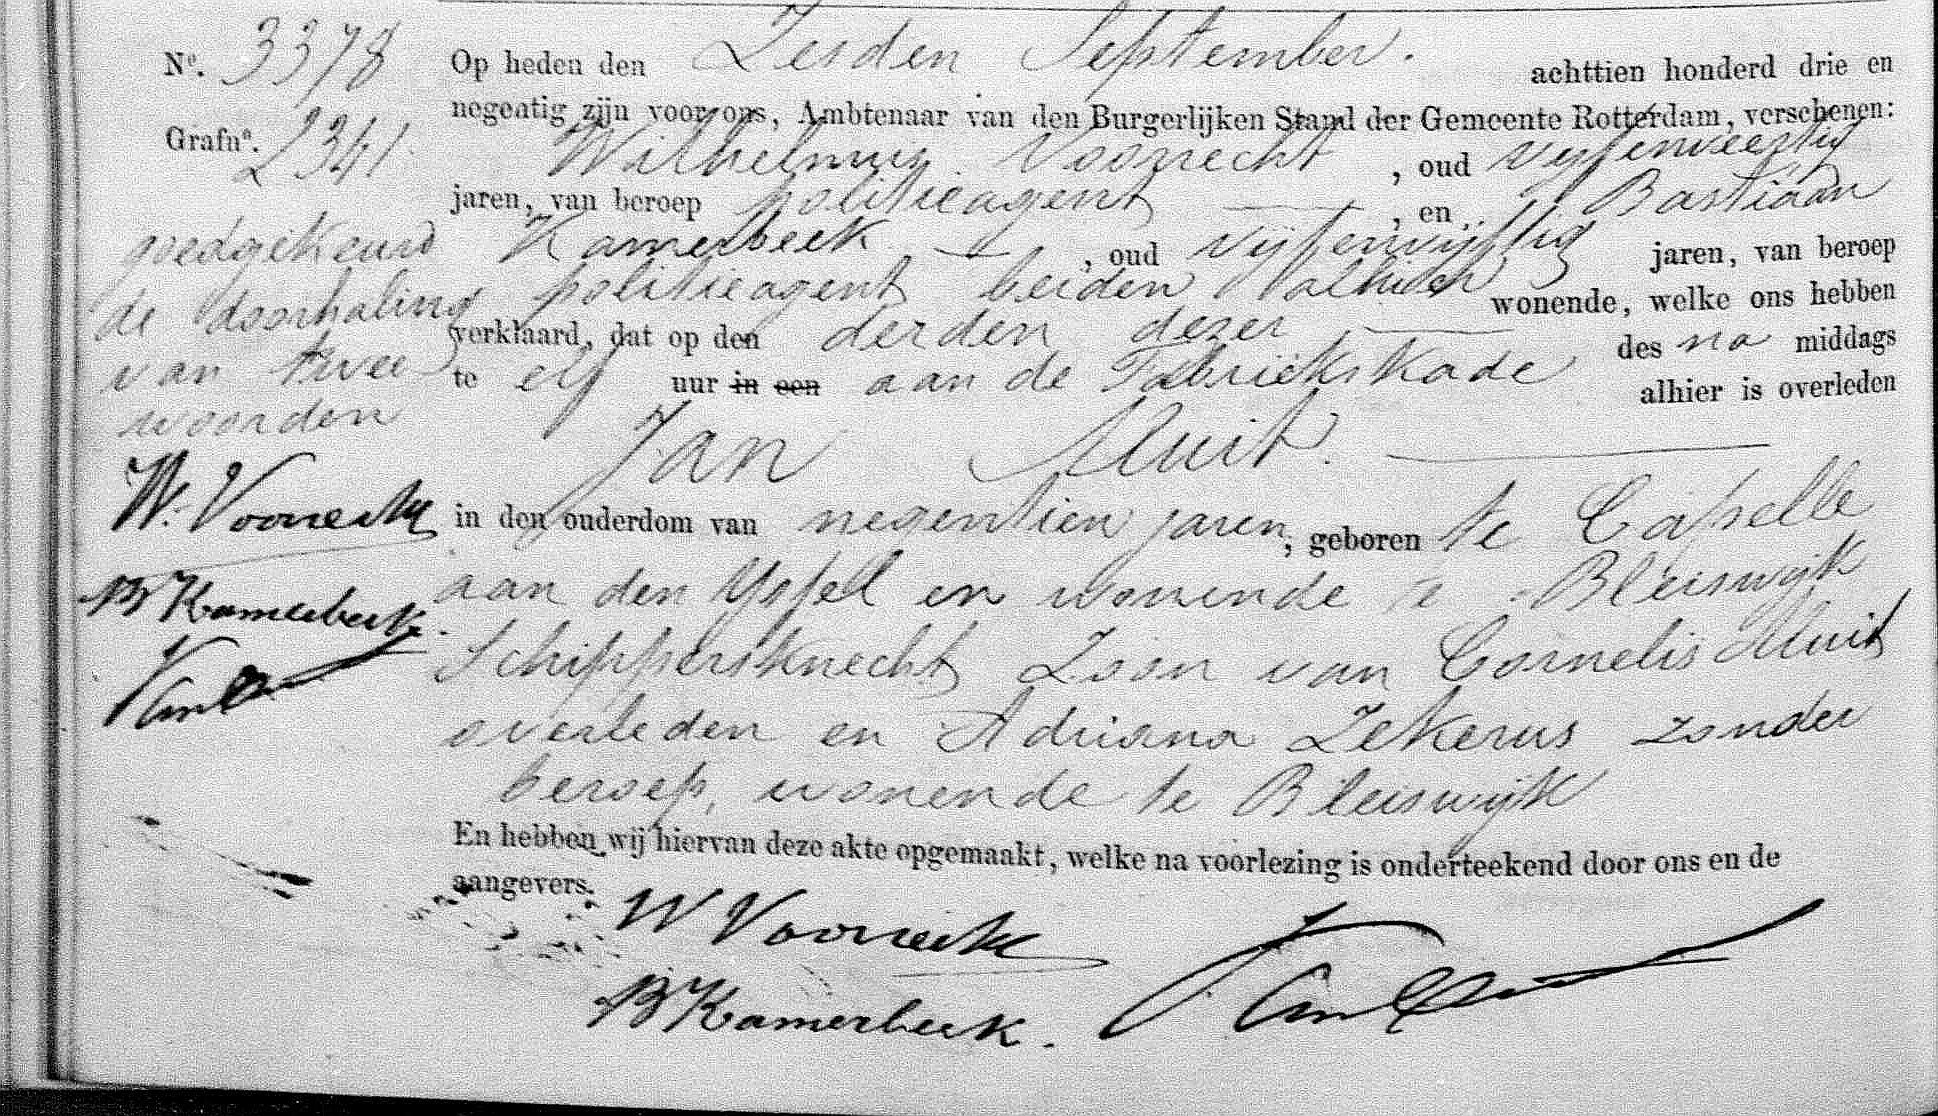 Nº. 3378 Op heden den Zesden September. achttien honderd drie en
negentig zijn voor ons, Ambtenaar van den Burgerlijken Stand der Gemeente Rotterdam, verschenen:
Grafnº. 2341 Wilhelmus Voorrecht, oud vijfenveertig
jaren, van beroep politieagent, en Bastiaan
Kamerbeek, oud vijfenvijftig jaren, van beroep
politieagent beiden alhier wonende, welke ons hebben
verklaard, dat op den derden dezer des na middags
te elf uur in een aan de Fabriekskade alhier is overleden
Jan Muit.
in den ouderdom van negentien jaren, geboren te Capelle
aan den Yssel en wonende te Bleiswijk
Schippersknecht Zoon van Cornelis Muit
overleden en Adriana Zekerus zonder
beroep, wonende te Bleiswijk
En hebben wij hiervan deze akte opgemaakt, welke na voorlezing is onderteekend door ons en de
aangevers.
W Voorrecht
B Kamerbeek.
goedgekeurd
de doorhaling
van twee
woorden
W. Voorrecht
B Kamerbeek.